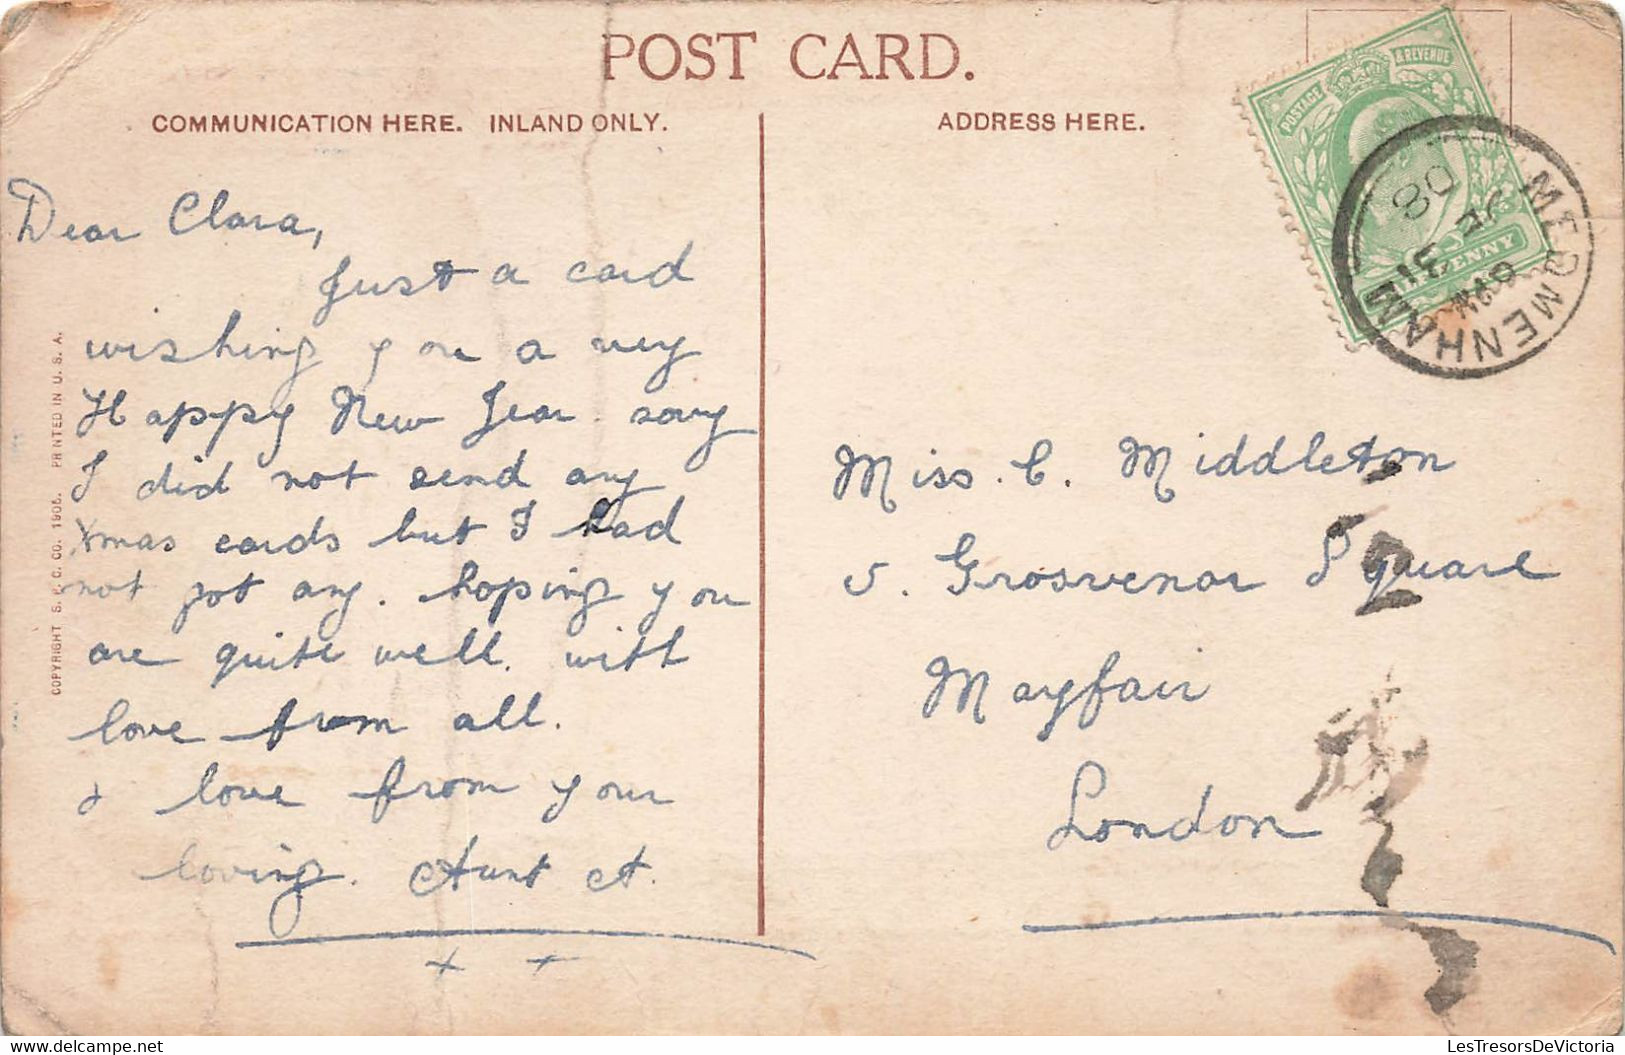 POST CARD.
COMMUNICATION HERE. INLAND ONLY.
ADDRESS HERE.
Dear Clara,
Just a card
wishing you a very
Happy New Year. sorry
I did not send any
Xmas cards but I had
not got any. hoping you
are quite well. with
love from all.
& love from your
loving. Aunt A.
x x
COPYRIGHT S. P. C. CO. 1905. PRINTED IN U. S. A.
POSTAGE & REVENUE
HALFPENNY
MEDMENHAM
DE 31
08
Miss. C. Middleton
5. Grosvenor Square
Mayfair
London
delcampe.net
LesTresorsDeVictoria